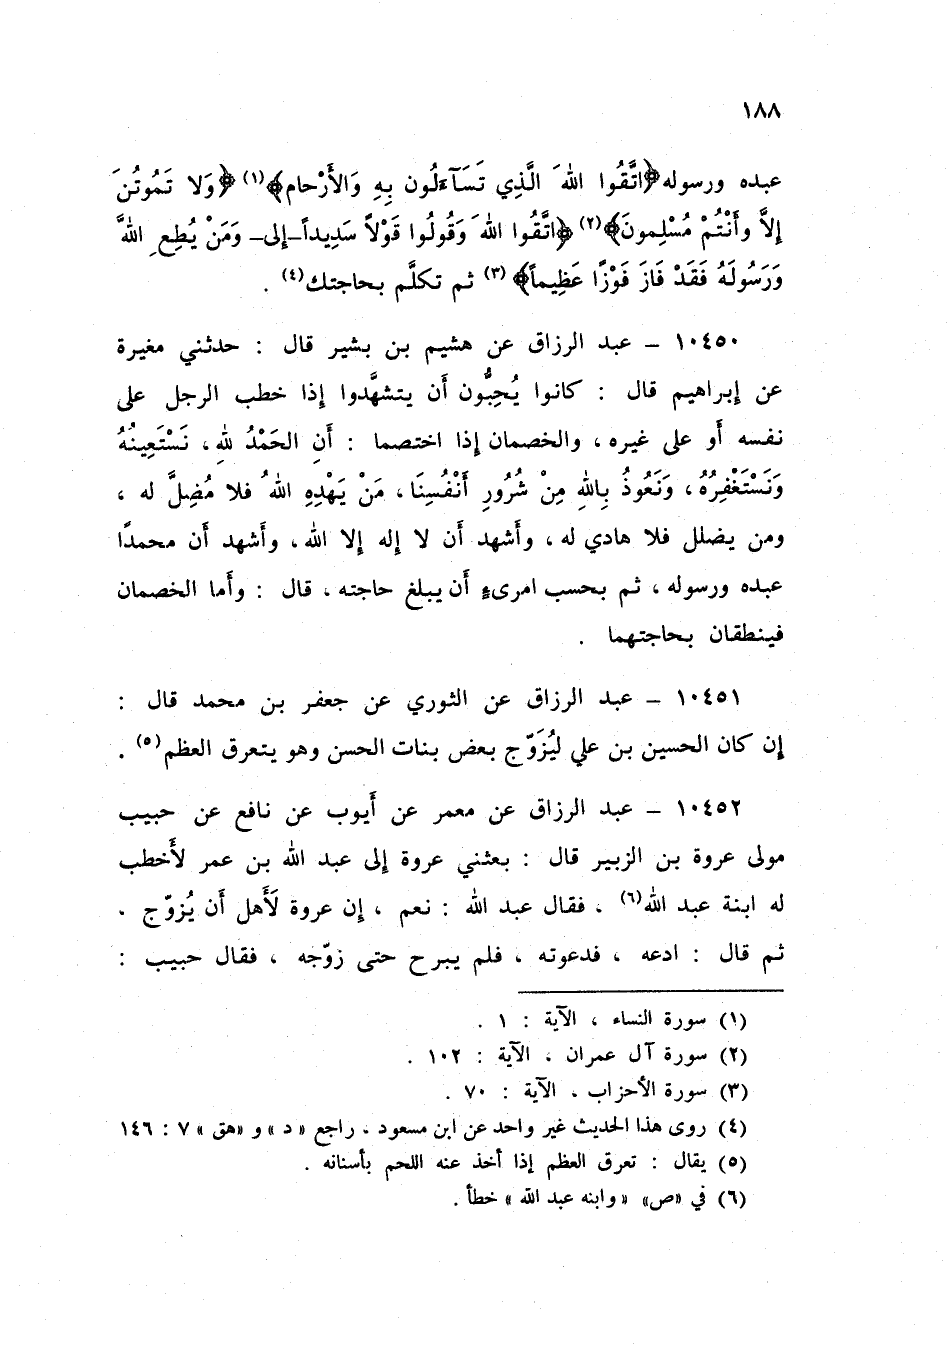 ١٨٨
عبده ورسوله ﴿اتَّقُوا اللهَ الَّذِي تَسَآءَلُون بِهِ وَالأَرْحام﴾(١) ﴿وَلا تَمُوتُنَّ
إِلاَّ وأَنْتُمْ مُسْلِمونَ﴾(٢) ﴿اتَّقُوا اللهَ وَقُولُوا قَوْلاً سَدِيداً-إلى- وَمَنْ يُطِعِ اللهَ
وَرَسُولَهُ فَقَدْ فَازَ فَوْزًا عَظِيماً﴾ (٣) ثم تكلَّم بحاجتك(٤) .
١٠٤٥٠ - عبد الرزاق عن هشيم بن بشير قال : حدثني مغيرة
عن إبراهيم قال : كانوا يُحِبُّون أن يتشهَّدوا إذا خطب الرجل على
نفسه أو على غيره ، والخصمان إذا اختصما : أَنِ الحَمْدُ للهِ ، نَسْتَعِينُهُ
وَنَسْتَغْفِرُهُ ، وَنَعُوذُ بِاللهِ مِنْ شُرُورِ أَنْفُسِنَا ، مَنْ يَهْدِهِ اللهُ فلا مُضِلَّ له ،
ومن يضلل فلا هادي له ، وأشهد أن لا إله إلا الله ، وأشهد أن محمدًا
عبده ورسوله ، ثم بحسب امرىءٍ أن يبلغ حاجته ، قال : وأما الخصمان
فينطقان بحاجتهما .
١٠٤٥١ - عبد الرزاق عن الثوري عن جعفر بن محمد قال :
إن كان الحسين بن علي ليُزَوّج بعض بنات الحسن وهو يتعرق العظم(٥) .
١٠٤٥٢ - عبد الرزاق عن معمر عن أيوب عن نافع عن حبيب
مولى عروة بن الزبير قال : بعثني عروة إلى عبد الله بن عمر لأخطب
له ابنة عبد الله(٦) ، فقال عبد الله : نعم ، إن عروة لَأَهل أن يُزوّج ،
ثم قال : ادعه ، فدعوته ، فلم يبرح حتى زوّجه ، فقال حبيب :
(١) سورة النساء ، الآية : ١ .
(٢) سورة آل عمران ، الآية : ١٠٢ .
(٣) سورة الأحزاب ، الآية : ٧٠ .
(٤) روى هذا الحديث غير واحد عن ابن مسعود ، راجع «د» و «هق» ٧ : ١٤٦
(٥) يقال : تعرق العظم إذا أخذ عنه اللحم بأسنانه .
(٦) في «ص» «وابنه عبد الله» خطأ .